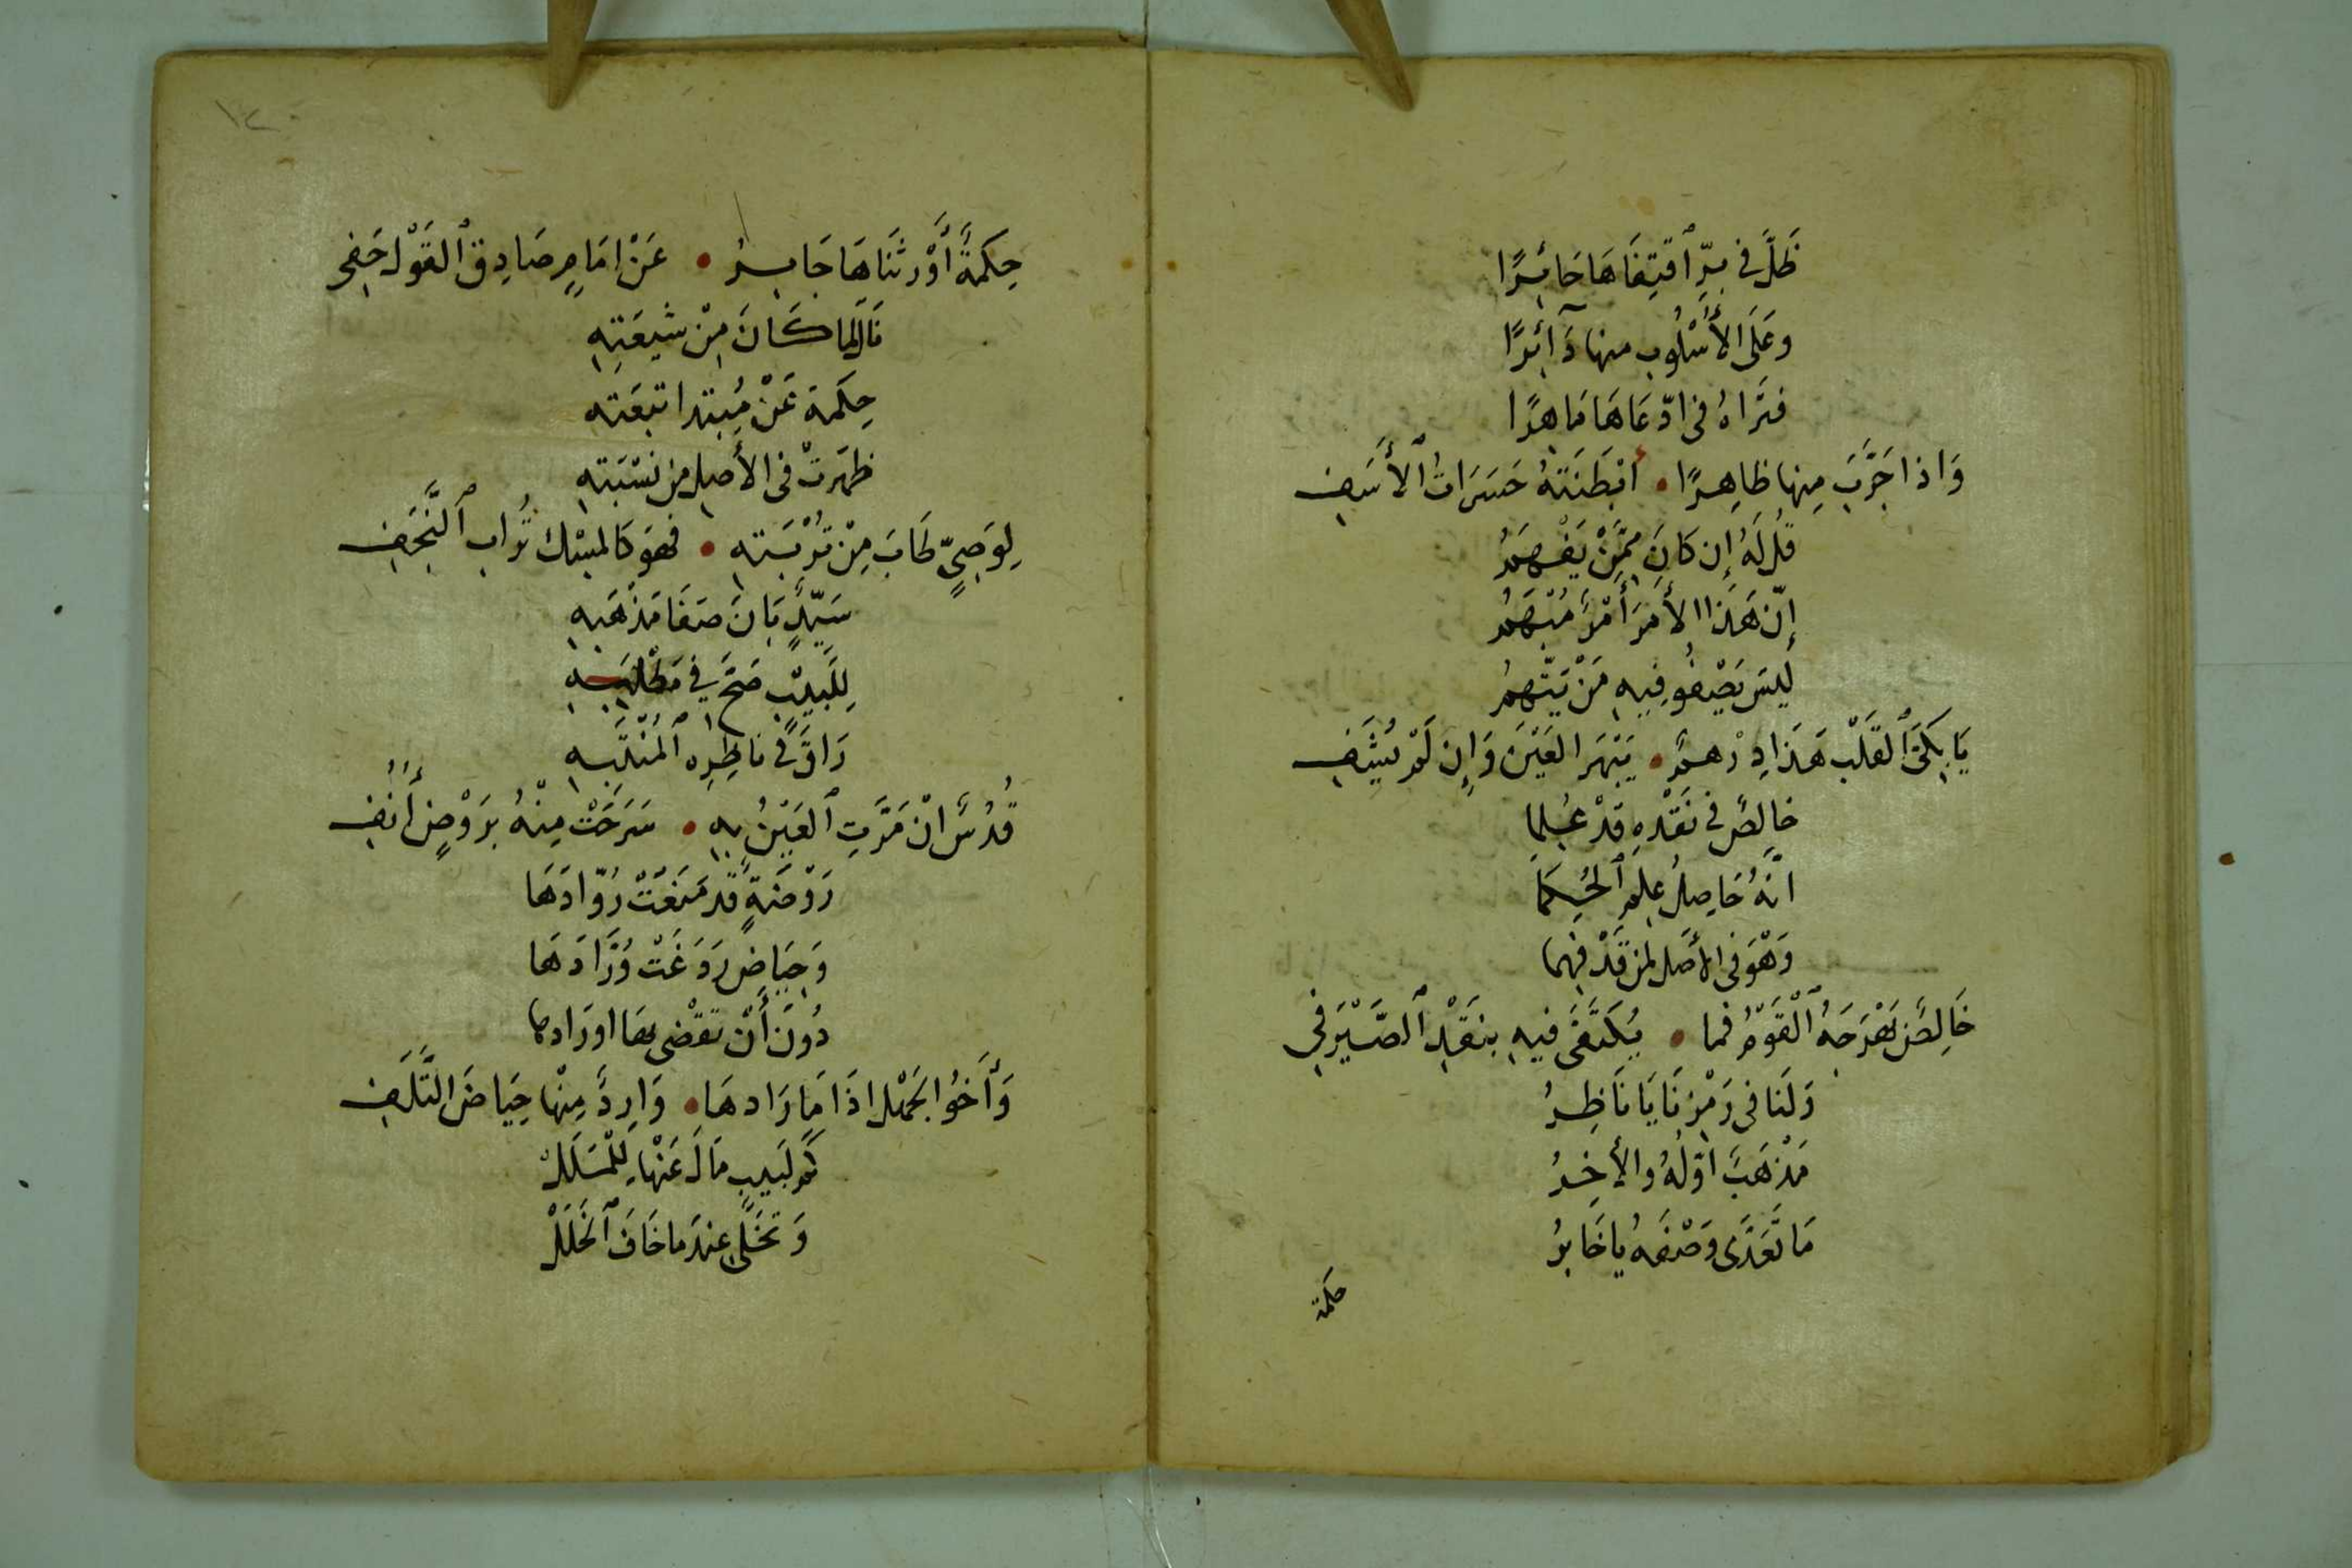 ظَلَّ في بِرِّ ٱقتِفَاهَا حَائِرًا
وعَلَى الأُسْلُوبِ منها دَآئِرًا
فتَراهُ في ادّعَاهَا مَاهِرًا
وَاذا جَرَّبَ مِنها ظاهِرًا • ابْطَنَتهُ حَسَرَاتُ ٱلأَسَفِ
قُل لَهُ إِن كانَ مِمَّنْ يَفْهَمُ
إِنّ هَذا الأَمرَ أَمْرٌ مُبْهَمُ
لَيسَ يَصْفُو فِيهِ مَنْ يَتّهمُ
يَا بَكِىَّ ٱلقَلْبِ هَذا دِرْهمٌ • يَبْهَر العَيْنَ وَإِن لَمْ يُشَفِ
خالِصٌ في نَقْدِهِ قَدْ عُلِما
انَّهُ حَاصِلُ عِلمِ ٱلحُكَمَا
وَهْوَ في الأصَل لمن قَدْ فهِما
خَالِصٌ بَهْرَجَهُ ٱلْقَوْمُ فما • يُكتَفَى فيهِ بنَقْدِ ٱلصَّيْرَفِي
وَلَنا في رَمْزِنَا يَا نَاظِرُ
مَذْهَبٌ اوّلُهُ والأخِرُ
مَا تَعَدَّى وَصْفَهُ يا خَابِرُ
حكمة
حِكمَةً أَوْرثَنَاهَا جَابِرُ • عَنْ إمَامٍ صَادِق ٱلقَوْل حَفِى
نَالَها كَانَ مِنْ شيعَتِهِ
حِكَمة عَنْ مُبتدا تبعَته
ظهَرتْ في الأصل من نسْبَتِهِ
لِوَصِيٍّ طَابَ مِنْ تُرْبَتِهِ • فهوَ كالمِسْك تُراب ٱلنَّجَفِ
سَيّدٍ بَانَ صَفَا مَذهَبهِ
لِلَبيبٍ صَحَّ في مَطْلَبِهِ
رَاقَ في ناظِرِه ٱلمُنْتَبهِ
قُدْسٌ انْ مَرَّتِ ٱلعَيْنُ بِهِ • سَرَحَتْ مِنْهُ بِرَوْضٍ أُنُفِ
رَوْضَةٍ قَد مَنَعَتْ رُوّادَهَا
وَحِيَاض رَدَغَتْ وُرَّادَهَا
دُونَ أَنْ تقْضى بها اورَادها
وَأَخُوا لجَهْل اذَا مَا رَادهَا • وَارِدٌ مِنْها حِيَاضَ التَّلَفِ
كم لَبيبٍ مَالَ عَنْهَا لِلْمَلَلْ
وَتخَلى عِندَما خَافَ ٱلخَلَلْ